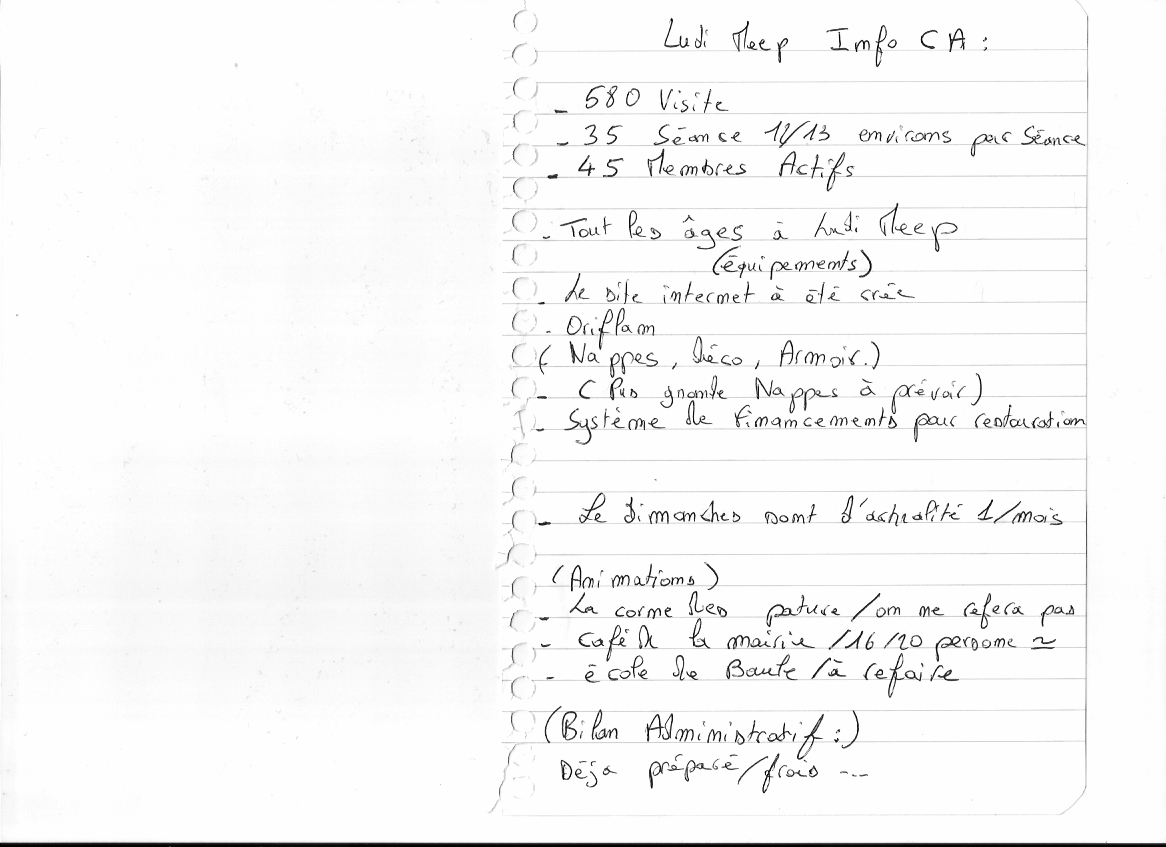 Ludi Meep Info CA :
- 580 Visite
- 35 Séance 12/13 environs par Séance
- 45 Membres Actifs
- Tout les âges à Ludi Meep
(équipements)
- Le site internet à été crée
- Oriflam
( Nappes, Déco, Armoir.)
- ( Plus grande Nappes à prévoir)
- Système de financements pour restauration
- Le dimanches sont d'actualité 1/mois
(Animations)
- La corne des pature / on ne refera pas
- café de la mairie / 16/20 personne ≃
- école de Baule / à refaire
(Bilan Administratif :)
Déja préparé / frais ...